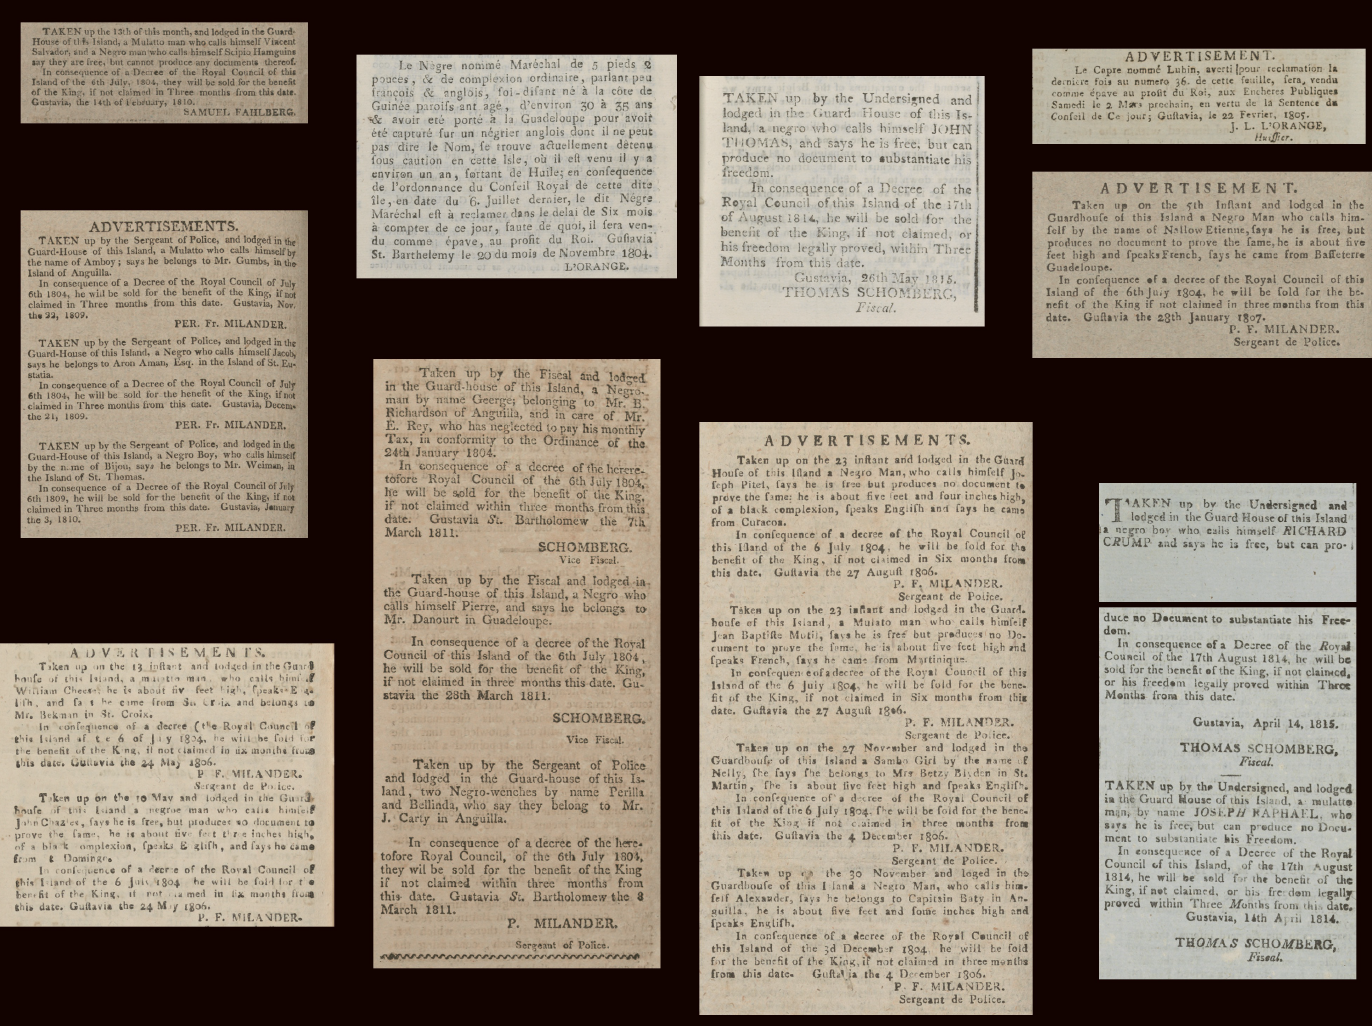 TAKEN up the 13th of this month, and lodged in the Guard-
House of this Island, a Mulatto man who calls himself Vincent
Salvador, and a Negro man who calls himself Scipio Hamguins
say they are free, but cannot produce any documents thereof.
In consequence of a Decree of the Royal Council of this
Island of the 6th July, 1804, they will be sold for the benefit
of the King, if not claimed in Three months from this date.
Gustavia, the 14th of February, 1810.
SAMUEL FAHLBERG.
ADVERTISEMENTS.
TAKEN up by the Sergeant of Police, and lodged in the
Guard-House of this Island, a Mulatto who calls himself by
the name of Amboy; says he belongs to Mr. Gumbs, in the
Island of Anguilla.
In consequence of a Decree of the Royal Council of July
6th 1804, he will be sold for the benefit of the King, if not
claimed in Three months from this date. Gustavia, Nov.
the 22, 1809.
PER. Fr. MILANDER.
TAKEN up by the Sergeant of Police, and lodged in the
Guard-House of this Island, a Negro who calls himself Jacob,
says he belongs to Aron Aman, Esq. in the Island of St. Eu-
statia.
In consequence of a Decree of the Royal Council of July
6th 1804, he will be sold for the benefit of the King, if not
claimed in Three months from this date. Gustavia, Decem-
the 21, 1809.
PER. Fr. MILANDER.
TAKEN up by the Sergeant of Police, and lodged in the
Guard-House of this Island, a Negro Boy, who calls himself
by the name of Bijou, says he belongs to Mr. Weiman, in
the Island of St. Thomas.
In consequence of a Decree of the Royal Council of July
6th 1809, he will be sold for the benefit of the King, if not
claimed in Three months from this date. Gustavia, January
the 3, 1810.
PER. Fr. MILANDER.
ADVERTISEMENTS.
Taken up on the 13 inſtant and lodged in the Guard
houſe of this Island, a mulatto man, who calls himſelf
William Cheeſe: he is about five feet high, ſpeaks
and he came from St. Croix and belongs to
Mr. Bekman in St. Croix.
In conſequence of a decree of the Royal Council of
this Island of the 6 of July 1804, he will be ſold for
the benefit of the King, if not claimed in six months from
this date. Guſtavia the 24 May 1806.
P. F. MILANDER.
Sergeant de Police.
Taken up on the 10 May and lodged in the Guard
houſe of this Island a negroe man who calls himſelf
John Charles, ſays he is free, but produces no document to
prove the ſame, he is about five feet three inches high,
of a black complexion, ſpeaks Engliſh, and ſays he came
from St Domingo.
In conſequence of a decree of the Royal Council of
this Island of the 6 July 1804 he will be ſold for the
benefit of the King, if not claimed in six months from
this date. Guſtavia the 24 May 1806.
P. F. MILANDER.
Le Nègre nommé Maréchal de 5 pieds 2
pouces, & de complexion ordinaire, parlant peu
françois & anglois, ſoi-diſant né à la côte de
Guinée paroiſsant agé, d'environ 30 à 35 ans
& avoir eté porté à la Guadeloupe pour avoit
été capturé ſur un négrier anglois dont il ne peut
pas dire le Nom, ſe trouve actuellement détenu
ſous caution en cette Isle, où il eſt venu il y a
environ un an, ſortant de Huile; en conſequence
de l'ordonnance du Conſeil Royal de cette dite
île, en date du 6. Juillet dernier, le dit Nègre
Maréchal eſt à reclamer dans le delai de Six mois
à compter de ce jour, faute de quoi, il ſera ven-
du comme épave, au profit du Roi. Guſtavia
St. Barthelemy le 20 du mois de Novembre 1804.
L'ORANGE.
Taken up by the Fiscal and lodged
in the Guard-house of this Island, a Negro-
man by name Geerge; belonging to Mr. B.
Richardson of Anguilla, and in care of Mr.
E. Rey, who has neglected to pay his monthly
Tax, in conformity to the Ordinance of the
24th January 1804.
In consequence of a decree of the herere-
tofore Royal Council of the 6th July 1804,
he will be sold for the benefit of the King,
if not claimed within three months from this
date. Gustavia St. Bartholomew the 7th
March 1811.
SCHOMBERG.
Vice Fiscal.
Taken up by the Fiscal and lodged in
the Guard-house of this Island, a Negro who
calls himself Pierre, and says he belongs to
Mr. Danourt in Guadeloupe.
In consequence of a decree of the Royal
Council of this Island of the 6th July 1804,
he will be sold for the benefit of the King,
if not claimed in three months this date. Gu-
stavia the 28th March 1811.
SCHOMBERG.
Vice Fiscal.
Taken up by the Sergeant of Police
and lodged in the Guard-house of this Is-
land, two Negro-wenches by name Perilla
and Bellinda, who say they belong to Mr.
J. Carty in Anguilla.
In consequence of a decree of the here-
tofore Royal Council, of the 6th July 1804,
they wil be sold for the benefit of the King
if not claimed within three months from
this date. Gustavia St. Bartholomew the 8
March 1811.
P. MILANDER.
Sergeant of Police.
TAKEN up by the Undersigned and
lodged in the Guard House of this Is-
land, a negro who calls himself JOHN
THOMAS, and says he is free, but can
produce no document to substantiate his
freedom.
In consequence of a Decree of the
Royal Council of this Island of the 17th
of August 1814, he will be sold for the
benefit of the King, if not claimed, or
his freedom legally proved, within Three
Months from this date.
Gustavia, 26th May 1815.
THOMAS SCHOMBERG,
Fiscal.
ADVERTISEMENTS.
Taken up on the 23 inſtant and lodged in the Guard
Houſe of this Iſland a Negro Man, who calls himſelf Jo-
ſeph Pitel, ſays he is free but produces no document to
prove the ſame; he is about five feet and four inches high,
of a black complexion, ſpeaks Engliſh and ſays he came
from Curacoa.
In conſequence of a decree of the Royal Council of
this Iſland of the 6 July 1804, he will be ſold for the
benefit of the King, if not claimed in Six months from
this date. Guſtavia the 27 Auguſt 1806.
P. F. MILANDER.
Sergeant de Police.
Taken up on the 23 inſtant and lodged in the Guard.
houſe of this Island, a Mulato man who calls himſelf
Jean Baptiſte Mutil, ſays he is free but produces no Do-
cument to prove the ſame, he is about five feet high and
ſpeaks French, ſays he came from Martinique.
In conſequence of a decree of the Royal Council of this
Island of the 6 July 1804, he will be ſold for the bene-
fit of the King, if not claimed in Six months from this
date. Guſtavia the 27 Auguſt 1806.
P. F. MILANDER.
Sergeant de Police.
Taken up on the 27 November and lodged in the
Guardhouſe of this Island a Sambo Girl by the name of
Nelly, ſhe ſays ſhe belongs to Mrs Betzy Bladen in St.
Martin, ſhe is about five feet high and ſpeaks Engliſh.
In conſequence of a decree of the Royal Council of
this Island of the 6 July 1804. ſhe will be ſold for the bene-
fit of the King if not claimed in three months from
this date. Guſtavia the 4 December 1806.
P. F. MILANDER.
Sergeant de Police.
Taken up on the 30 November and loged in the
Guardhouſe of this Island a Negro Man, who calls him-
ſelf Alexander, ſays he belongs to Capitain Baty in An-
guilla, he is about five feet and ſome inches high and
ſpeaks Engliſh.
In conſequence of a decree of the Royal Council of
this Island of the 3d December 1804. he will be ſold
for the benefit of the King, if not claimed in three months
from this date. Guſtavia the 4 December 1806.
P. F. MILANDER.
Sergeant de Police.
ADVERTISEMENT.
Le Capre nommé Lubin, averti pour reclamation la
derniere fois au numero 36. de cette feuille, ſera, vendu
comme épave au profit du Roi, aux Encheres Publiques
Samedi le 2 Mars prochain, en vertu de la Sentence du
Conſeil de Ce jour; Guſtavia, le 22 Fevrier, 1805.
J. L. L'ORANGE,
Huiſſier.
ADVERTISEMENT.
Taken up on the 5th Inſtant and lodged in the
Guardhouſe of this Island a Negro Man who calls him-
ſelf by the name of Nallow Etienne, ſays he is free, but
produces no document to prove the ſame, he is about five
feet high and ſpeaks French, ſays he came from Baſſeterre
Guadeloupe.
In conſequence of a decree of the Royal Council of this
Island of the 6th July 1804, he will be ſold for the be-
nefit of the King if not claimed in three months from this
date. Guſtavia the 28th January 1807.
P. F. MILANDER.
Sergeant de Police.
TAAKEN up by the Undersigned and
lodged in the Guard House of this Island
a negro boy who calls himself RICHARD
CRUMP and says he is free, but can pro-
duce no Document to substantiate his Free-
dom.
In consequence of a Decree of the Royal
Council of the 17th August 1814, he will be
sold for the benefit of the King, if not claimed,
or his freedom legally proved within Three
Months from this date.
Gustavia, April 14, 1815.
THOMAS SCHOMBERG,
Fiscal.
TAKEN up by the Undersigned, and lodged
in the Guard House of this Island, a mulatto
man, by name JOSEPH RAPHAEL, who
says he is free, but can produce no Docu-
ment to substantiate his Freedom.
In consequence of a Decree of the Royal
Council of this Island, of the 17th August
1814, he will be sold for the benefit of the
King, if not claimed, or his freedom legally
proved within Three Months from this date.
Gustavia, 14th April 1814.
THOMAS SCHOMBERG,
Fiscal.